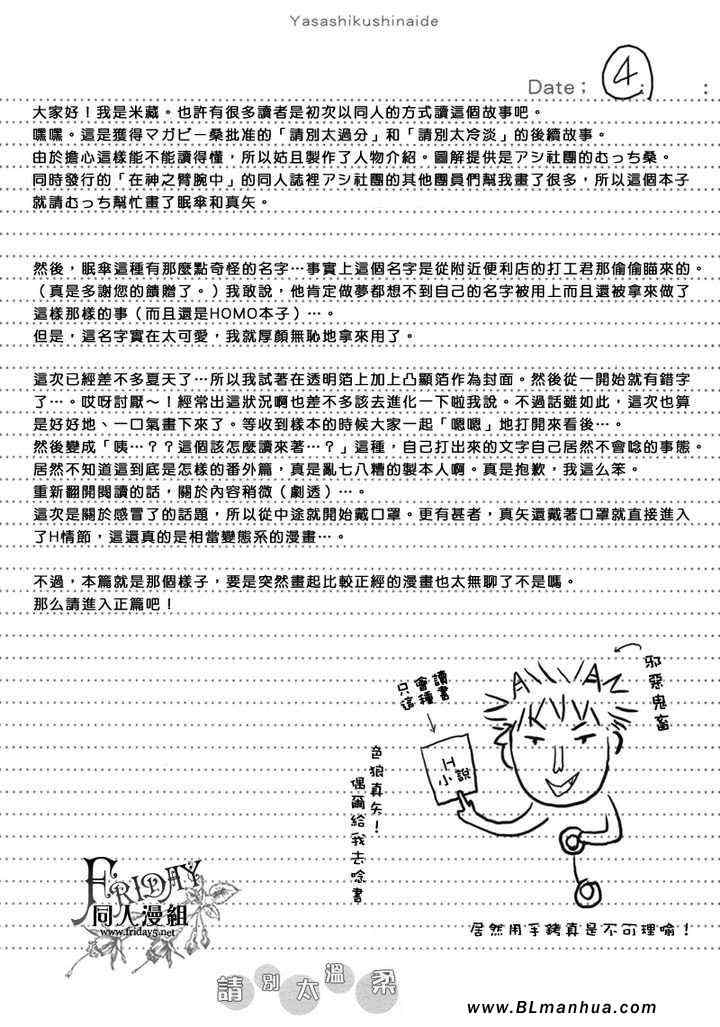 Yasashikushinaide
Date : 4 : :
大家好！我是米藏。也許有很多讀者是初次以同人的方式讀這個故事吧。
嘿嘿。這是獲得マガビー桑批准的「請別太過分」和「請別太冷淡」的後續故事。
由於擔心這樣能不能讀得懂，所以姑且製作了人物介紹。圖解提供是アシ社團的むっち桑。
同時發行的「在神之臂腕中」的同人誌裡アシ社團的其他團員們幫我畫了很多，所以這個本子
就請むっち幫忙畫了眠傘和真矢。
然後，眠傘這種有那麼點奇怪的名字…事實上這個名字是從附近便利店的打工君那偷偷瞄來的。
（真是多謝您的饋贈了。）我敢說，他肯定做夢都想不到自己的名字被用上而且還被拿來做了
這樣那樣的事（而且還是HOMO本子）…。
但是，這名字實在太可愛，我就厚顏無恥地拿來用了。
這次已經差不多夏天了…所以我試著在透明箔上加上凸顯箔作為封面。然後從一開始就有錯字
了…。哎呀討厭～！經常出這狀況啊也差不多該去進化一下啦我說。不過話雖如此，這次也算
是好好地、一口氣畫下來了。等收到樣本的時候大家一起「嗯嗯」地打開來看後…。
然後變成「咦…？？這個該怎麼讀來著…？」這種，自己打出來的文字自己居然不會唸的事態。
居然不知道這到底是怎樣的番外篇，真是亂七八糟的製本人啊。真是抱歉，我這么笨。
重新翻開閱讀的話，關於內容稍微（劇透）…。
這次是關於感冒了的話題，所以從中途就開始戴口罩。更有甚者，真矢還戴著口罩就直接進入
了H情節，這還真的是相當變態系的漫畫…。
不過，本篇就是那個樣子，要是突然畫起比較正經的漫畫也太無聊了不是嗎。
那么請進入正篇吧！
邪惡鬼畜
只會讀
這種書
H
小說
色狼真矢！
偶爾給我去唸書
居然用手銬真是不可理喻！
FRIDAY
同人漫組
www.friday5.net
請別太溫柔
www.BLmanhua.com